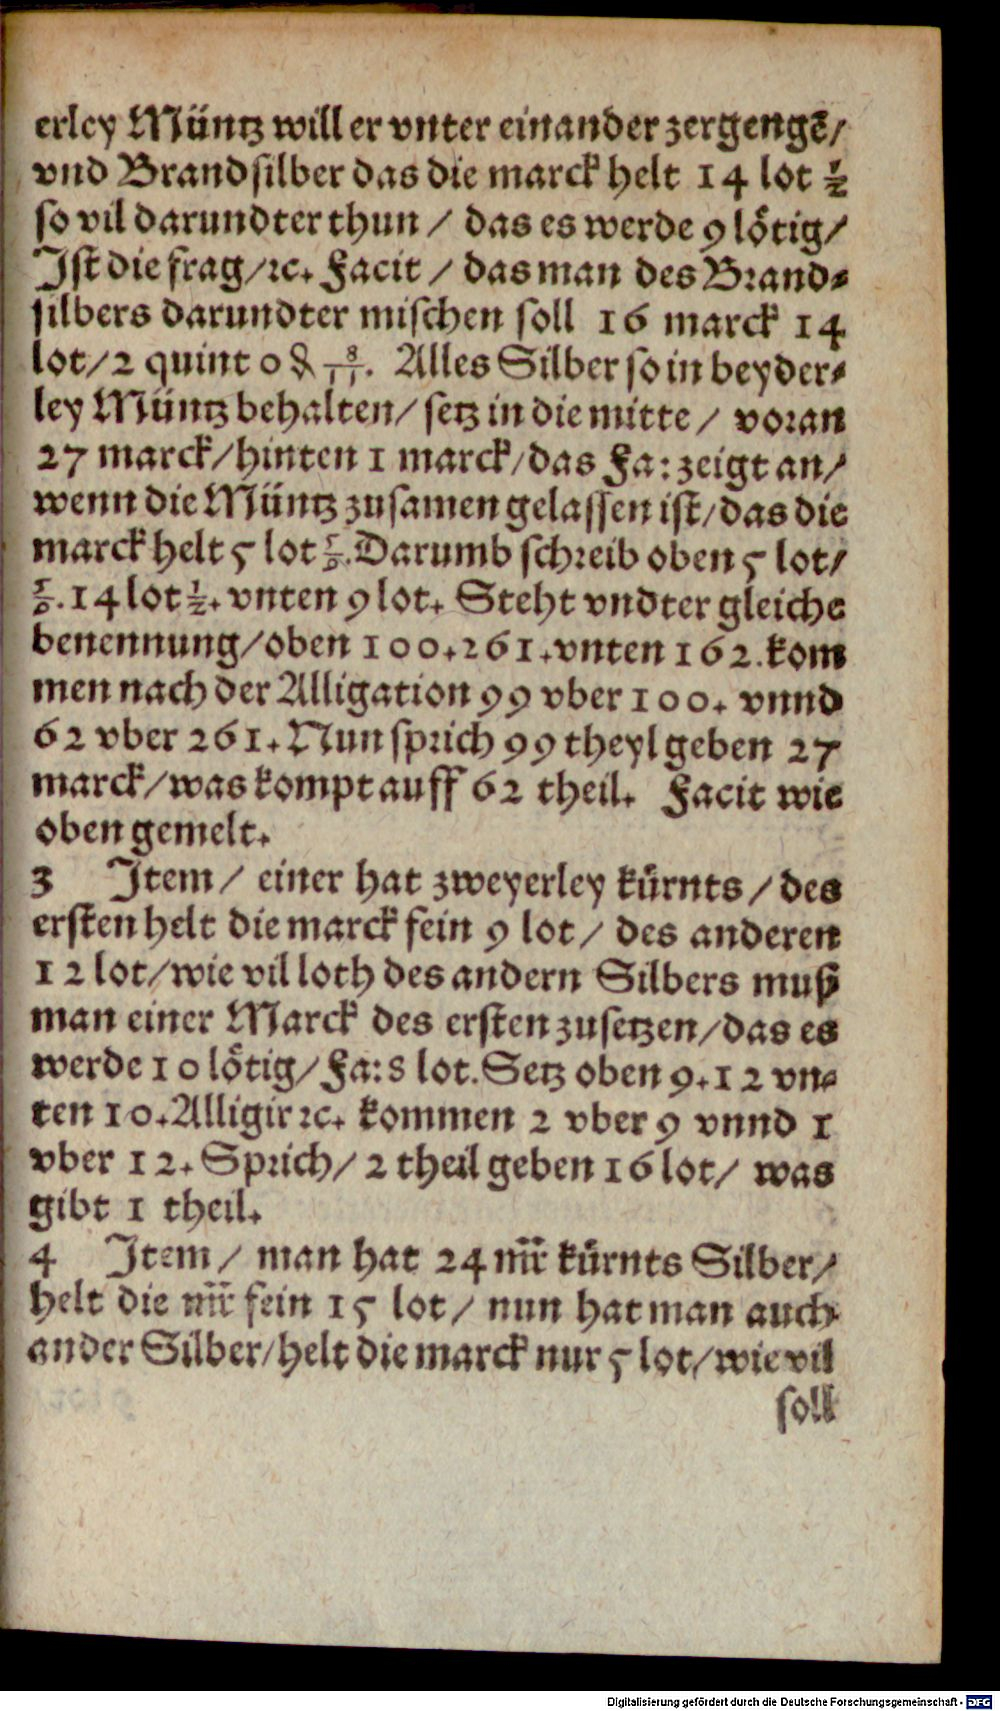 erley Müntz will er vnter einander zergengē/
vnd Brandsilber das die marck helt 14 lot ½
so vil darundter thun / das es werde 9 lötig/
Ist die frag/ꝛc. Facit / das man des Brand-
silbers darundter mischen soll 16 marck 14
lot/2 quint 0 ₰ 8/11. Alles Silber so in beyder-
ley Müntz behalten/ setz in die mitte / voran
27 marck/hinten 1 marck/das Fa: zeigt an/
wenn die Müntz zusamen gelassen ist/das die
marck helt 5 lot 5/9. Darumb schreib oben 5 lot/
5/9. 14 lot ½. vnten 9 lot. Steht vndter gleiche
benennung/oben 100. 261. vnten 162. kom
men nach der Alligation 99 vber 100. vnnd
62 vber 261. Nun sprich 99 theyl geben 27
marck/was kompt auff 62 theil. Facit wie
oben gemelt.
3 Item / einer hat zweyerley kürnts / des
ersten helt die marck fein 9 lot / des anderen
12 lot/wie vil loth des andern Silbers muß
man einer Marck des ersten zusetzen/das es
werde 10 lötig/Fa: 8 lot. Setz oben 9. 12 vn-
ten 10. Alligir ꝛc. kommen 2 vber 9 vnnd 1
vber 12. Sprich/ 2 theil geben 16 lot/ was
gibt 1 theil.
4 Item / man hat 24 mr̄ kürnts Silber/
helt die mr̄ fein 15 lot / nun hat man auch
ander Silber/helt die marck nur 5 lot/wie vil
soll
Digitalisierung gefördert durch die Deutsche Forschungsgemeinschaft - DFG